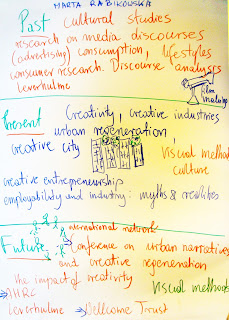 MARTA RABIKOWSKA
Past Cultural studies
research on media discourses
(advertising) consumption, lifestyles
consumer research. Discourse analyses
Leverhulme
film
making
Present Creativity, creative industries
urban regeneration,
creative city
Visual methods
culture
creative entrepreneurship
employability and industry: myths & realities
international network
Future: Conference on urban narratives
and creative regeneration
the impact of creativity
Visual methods
AHRC
Leverhulme → Wellcome Trust